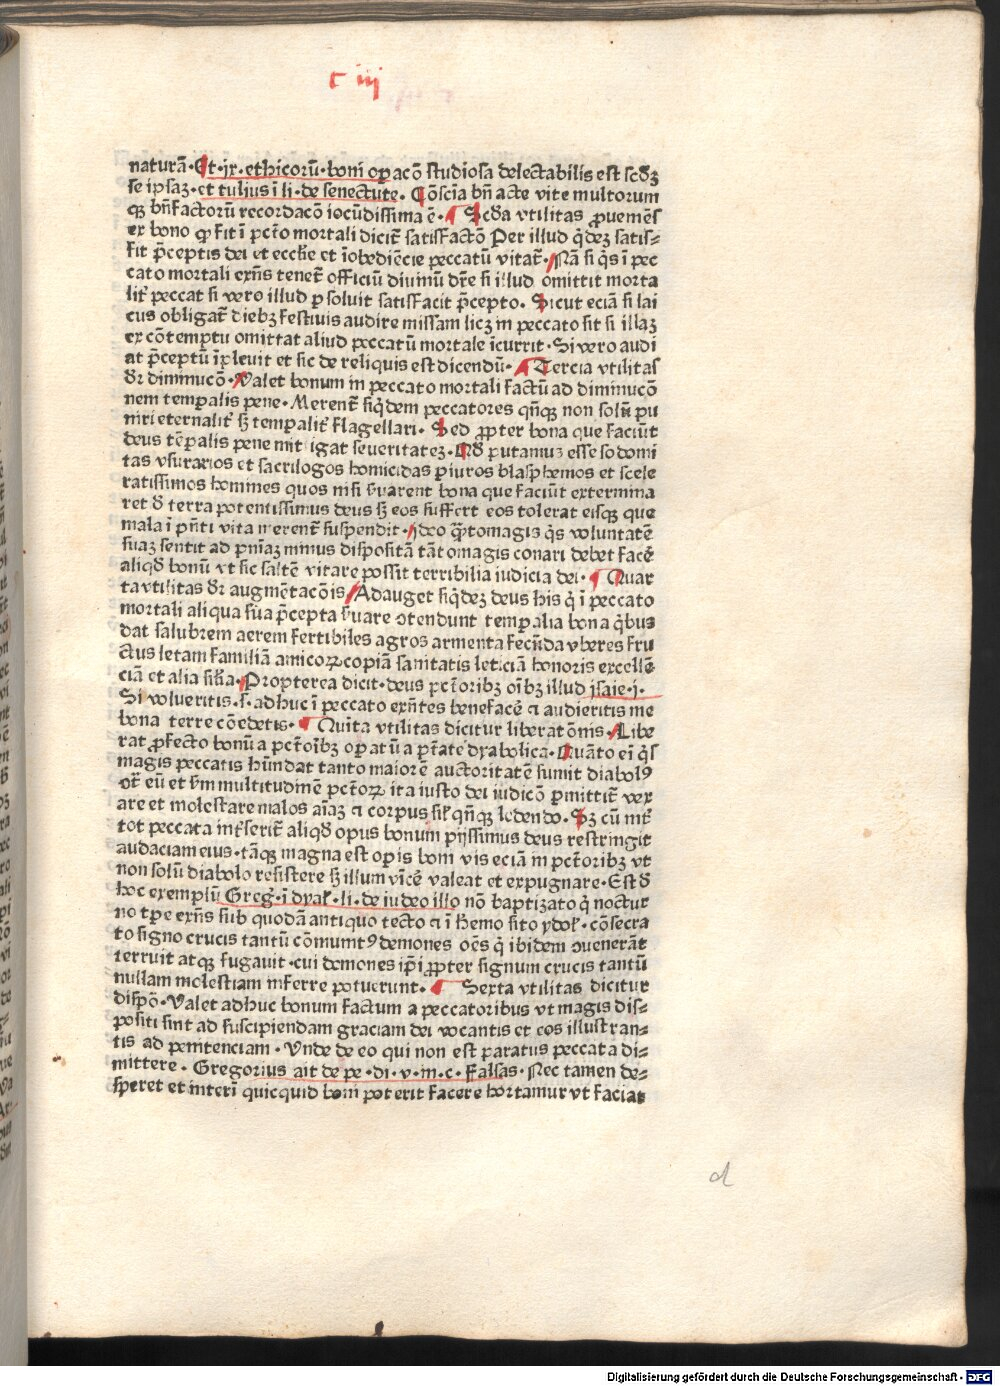 c iij
naturā·Et·ix·ethicorū·boni oꝑacō studiosa delectabilis est scd̄ꝫ
se ipsaꝫ·et tulius ī li·de senectute·Cōsciā bn̄ acte vite multorum
qꝫ bn̄factorū recordacō iocūdissima ē·¶ Scd̄a vtilitas ꝓuemēs
ex bono qd̓ fit ī pctō mortali dicit̄ satisfactō Per illud q̄deꝫ satis⸗
fit p̄ceptis dei et ecclīe et īobediēcie peccatū vitat̄·Nā si q̄s ī pec
cato mortali exn̄s tenet̄ officiū diuinū dr̄e si illud omittit morta
lit̄ peccat si vero illud ꝑsoluit satisfacit p̄cepto·Sicut eciā si lai
cus obligat̄ diebꝫ festiuis audire missam licꝫ in peccato sit si illaꝫ
ex cōtemptu omittat aliud peccatū mortale īcurrit·Si vero audi
at p̄ceptū īpleuit et sic de reliquis est dicendū·¶ Tercia vtilitas
dr̄ diminucō·Valet bonum in peccato mortali factū ad diminucō
nem temꝑalis pene·Merent̄ siq̄dem peccatores qn̄qꝫ non solū pu
niri eternalit̄ sꝫ temꝑalit̄ flagellari·Sed ꝓpter bona que faciūt
deus tēꝑalis pene mittigat seueritateꝫ·Nō putamus esse sodomi
tas vsurarios et sacrilogos homicidas ꝑiuros blasphemos et scele
ratissimos homines quos nisi ẜuarent bona que faciūt extermina
ret d̄ terra potentissimus deus sꝫ eos suffert eos tolerat eisqꝫ que
mala ī pn̄ti vita merent̄ suspendit·Ideo q̄ntomagis q̄s voluntatē
suaꝫ sentit ad pn̄iaꝫ minus dispositā tātomagis conari debet facē
aliqd̄ bonū vt sic saltē vitare possit terribilia iudicia dei·¶ Quar
ta vtilitas dr̄ augmētacōis·Adauget siq̄deꝫ deus his q̄ ī peccato
mortali aliqua sūa p̄cepta ẜuare ↄtendunt temꝑalia bona q̄bus
dat salubrem aerem fertibiles agros armenta fecūda vberes fru
ctus letam familiā amicoꝝ copiā sanitatis leticiā honoris excellē
ciā et alia sil̄ia·Propterea dicit·deus pctōribꝫ oībꝫ illud ysaie·i·
Si volueritis·s̄·adhuc ī peccato exn̄tes benefacē ⁊ audieritis me
bona terre cōedetis·¶ Quīta vtilitas dicitur liberatōnis·Libe
rat ꝓfecto bonū a pctōībꝫ oꝑatū a ptāte dyabolica·Quāto ei̅ q̄s
magis peccatis hūndat tanto maiorē auctoritatē sumit diabolꝰ
ↄt̄ eū et ẜm multitudinē pctōꝝ ita iusto dei iudicō ꝑmittit̄ vex
are et molestare malos aīaꝫ ⁊ corpus sil̄ qn̄qꝫ ledendo·Sꝫ cū int̄
tot peccata int̄serit̄ aliqd̄ opus bonum pijssimus deus restringit
audaciam eius·tāqꝫ magna est oꝑis boni vis eciā in pctōribꝫ vt
non solū diabolo resistere sꝫ illum vīcē valeat et expugnare·Est d̄
hoc exemplū Greg̓·ī dyal̄·li·de iudeo illo nō baptizato q̄ noctur
no tꝑe exn̄s sub quodā antiquo tecto ⁊ ī hemo sito ydol̄·cōsecra
to signo crucis tantū cōmunitꝰ demones oēs q̄ ibidem ↄuenerāt
terruit atqꝫ fugauit·cui demones ip̄i ꝓpter signum crucis tantū
nullam molestiam inferre potuerunt·¶ Sexta vtilitas dicitur
dispō·Valet adhuc bonum factum a peccatoribus vt magis dis⸗
positi sint ad suscipiendam graciam dei vocantis et eos illustran⸗
tis ad penitenciam·Vnde de eo qui non est paratus peccata di⸗
mittere·Gregorius ait de pe·di·v·in·c·Falsas·Nec tamen de⸗
speret et interī quicquid boni poterit facere hortamur vt faciat
d
Digitalisierung gefördert durch die Deutsche Forschungsgemeinschaft · DFG